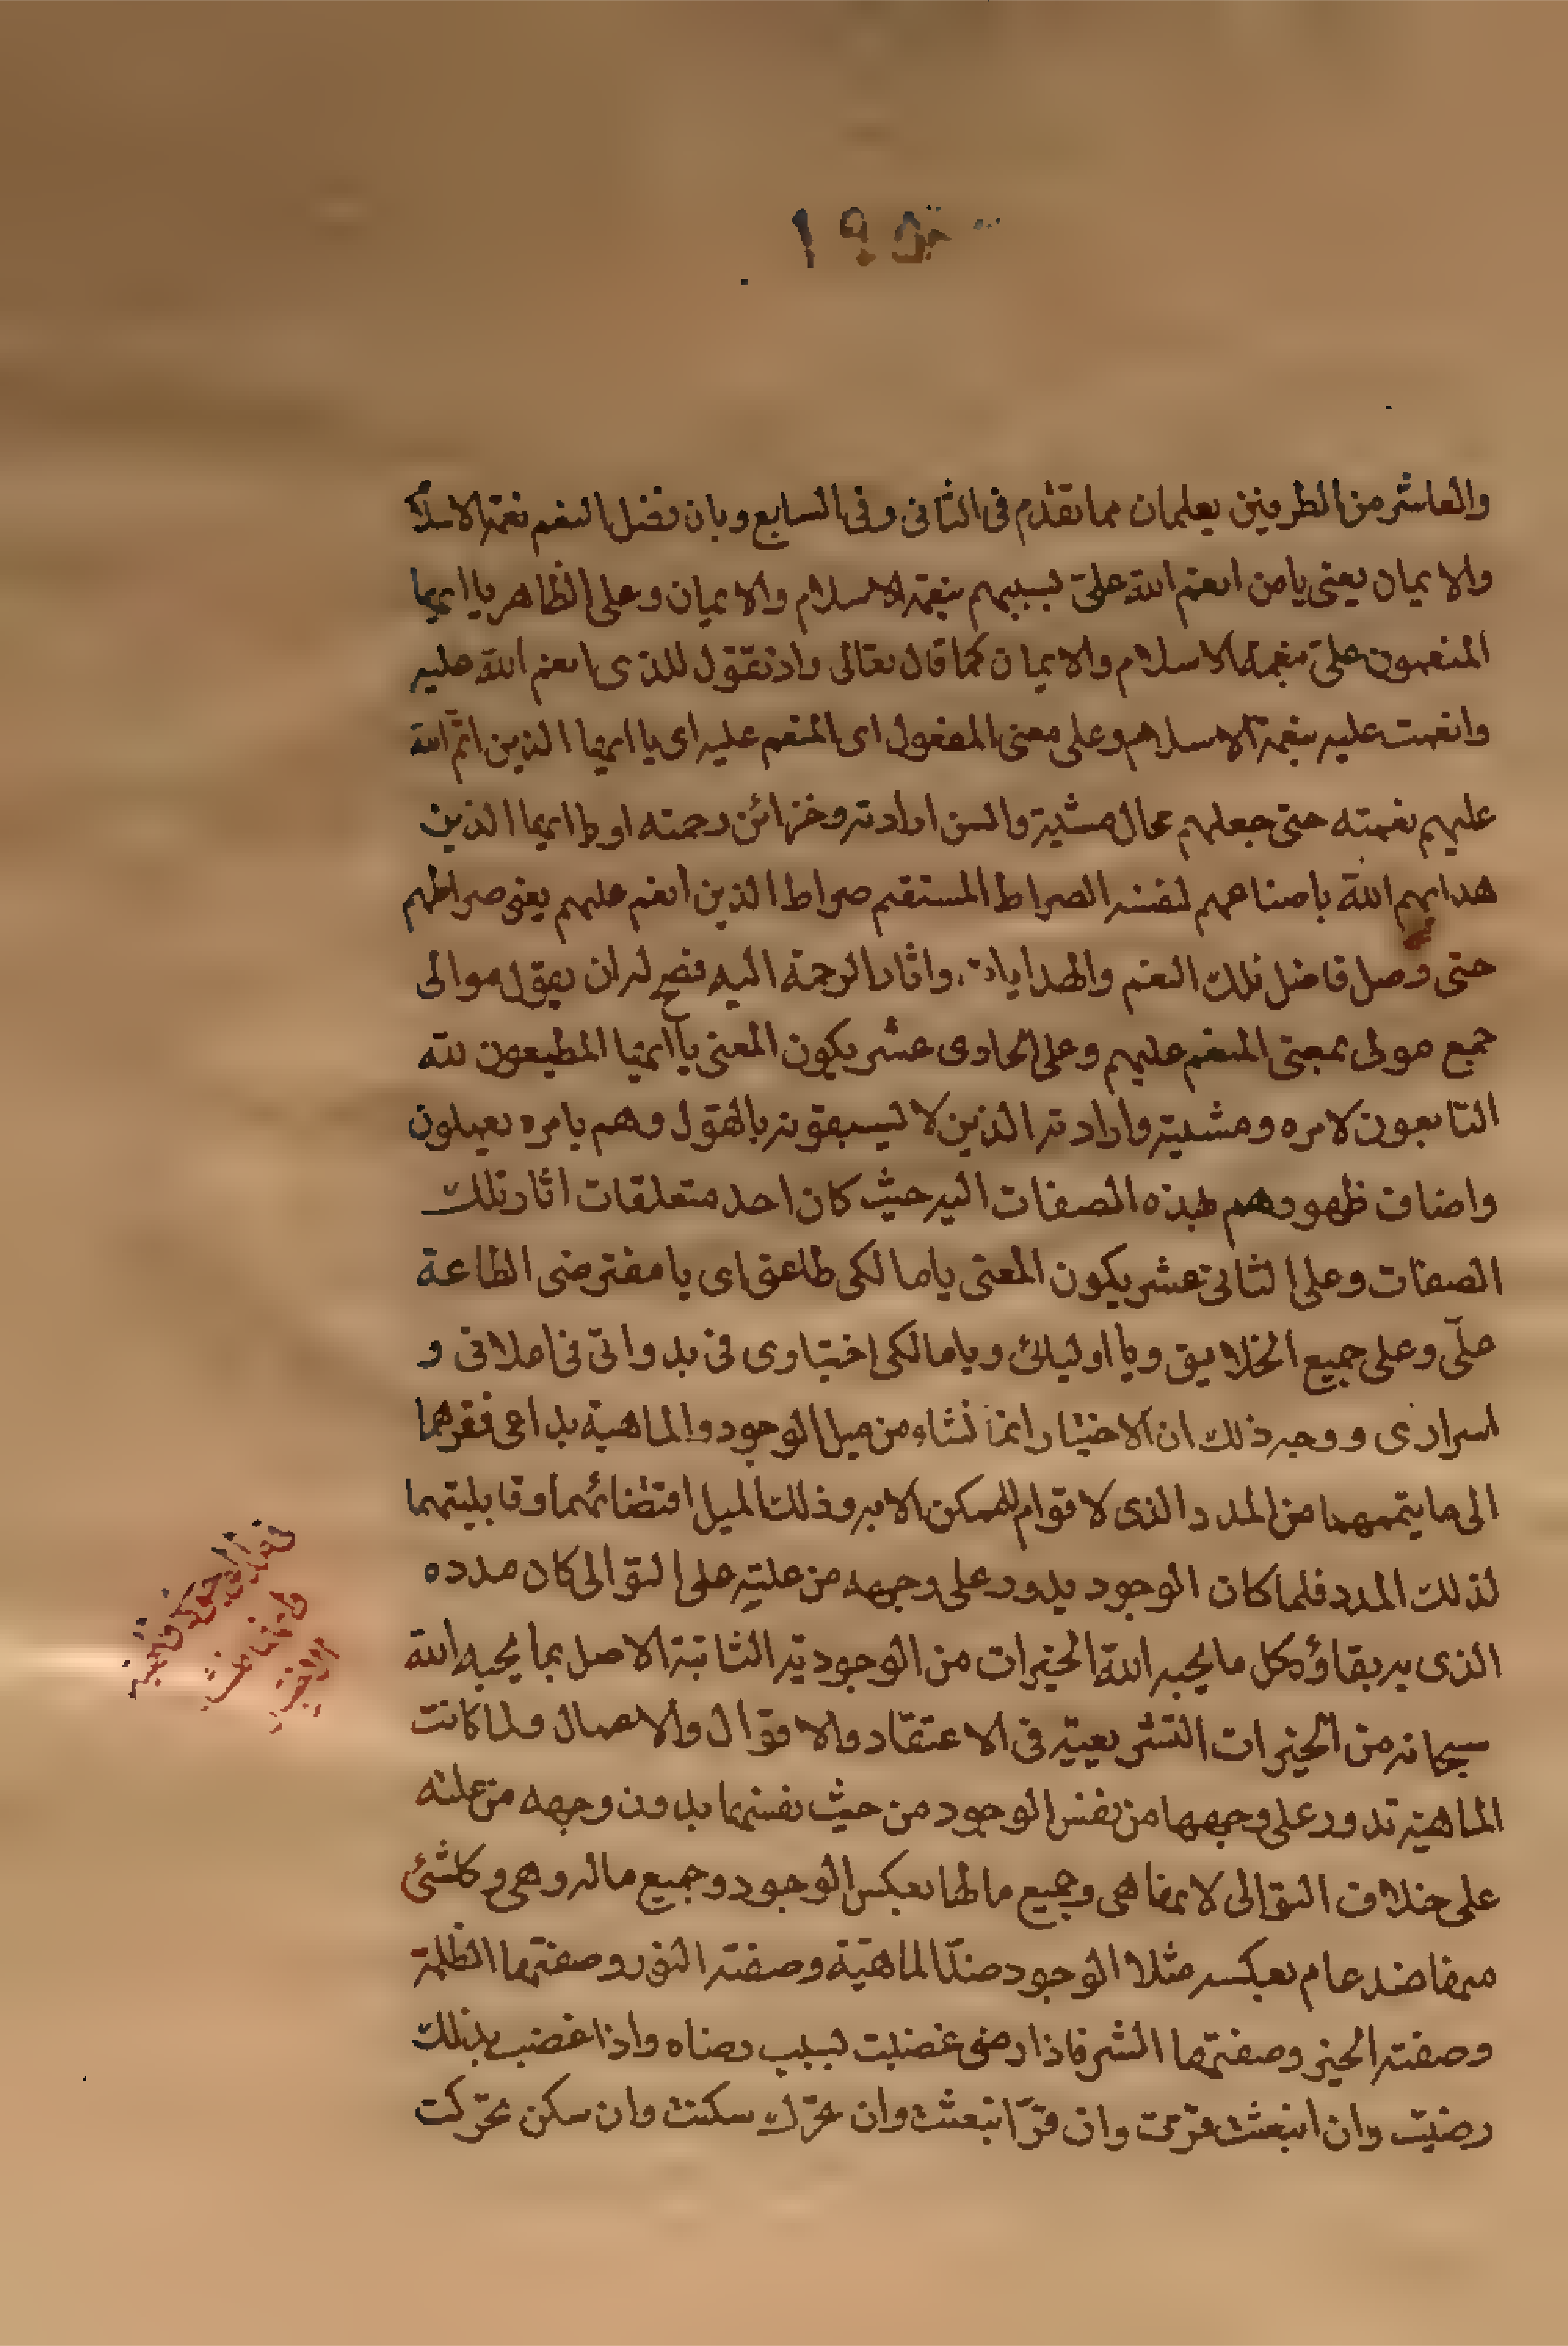 ١٩٥
والعاشر من الطرفين يعلمان مما تقدم فى الثانى وفى السابع وبان فضل النعم نعمة الاسلام
والايمان يعنى يا من انعم الله علىّ بسببهم بنعمة الاسلام والايمان وعلى الظاهر يا ايها
المنعمون علىّ بنعمة الاسلام والايمان كما قال تعالى واذ تقول للذى انعم الله عليه
وانعمت عليه بنعمة الاسلام وعلى معنى المفعول اى المنعم عليه اى يا ايها الذين اتمّ الله
عليهم نعمته حتى جعلهم محال مشيته والسن ارادته وخزائن رحمته او يا ايها الذين
هداهم الله باصناعهم لنفسه الصراط المستقيم صراط الذين انعم عليهم يعنى صراطهم
حتى وصل فاضل تلك النعم والهدايات واثار الرحمة اليه فصح له ان يقول موالى
جمع مولى بمعنى المنعم عليهم وعلى الحادى عشر يكون المعنى يا ايها المطيعون لله
التابعون لامره ومشيته وارادته الذين لا يسبقونه بالقول وهم بامره يعملون
واضاف ظهورهم بهذه الصفات اليه حيث كان احد متعلقات اثار تلك
الصفات وعلى الثانى عشر يكون المعنى يا مالكى طاعتى اى يا مفترضى الطاعة
علىّ وعلى جميع الخلايق ويا اوليائى ويا مالكى اختيارى فى بدواتى فى اعلانى و
اسرارى ووجه ذلك ان الاختيار انما نشاء من ميل الوجود والماهية بداعى فقرهما
الى ما يتممهما من المدد الذى لا قوام للممكن الا به وذلك الميل اقتضائهما وقابليتهما
لذلك المدد فلما كان الوجود يدور على وجهه من علته على التوالى كان مدده
الذى به بقاؤه كل ما يحبه الله الخيرات من الوجودية الثابتة الاصل بما يحبه الله
سبحانه من الخيرات التشريعية فى الاعتقاد والاقوال والاعمال ولما كانت
الماهية تدور على وجهها من نفس الوجود من حيث نفسها بدون وجهه من علته
على خلاف التوالى لانها هى وجميع مالها بعكس الوجود وجميع ماله وهى وكلشئ
منها ضد عام بعكسه مثلا الوجود ضدّ الماهية وصفته النور وصفتها الظلمة
وصفته الخير وصفتها الشر فاذا رضى غضبت بسبب رضاه واذا غضب بذلك
رضيت وان انبعث قرّت وان قرّ انبعثت وان تحرّك سكنت وان سكن تحرّكت